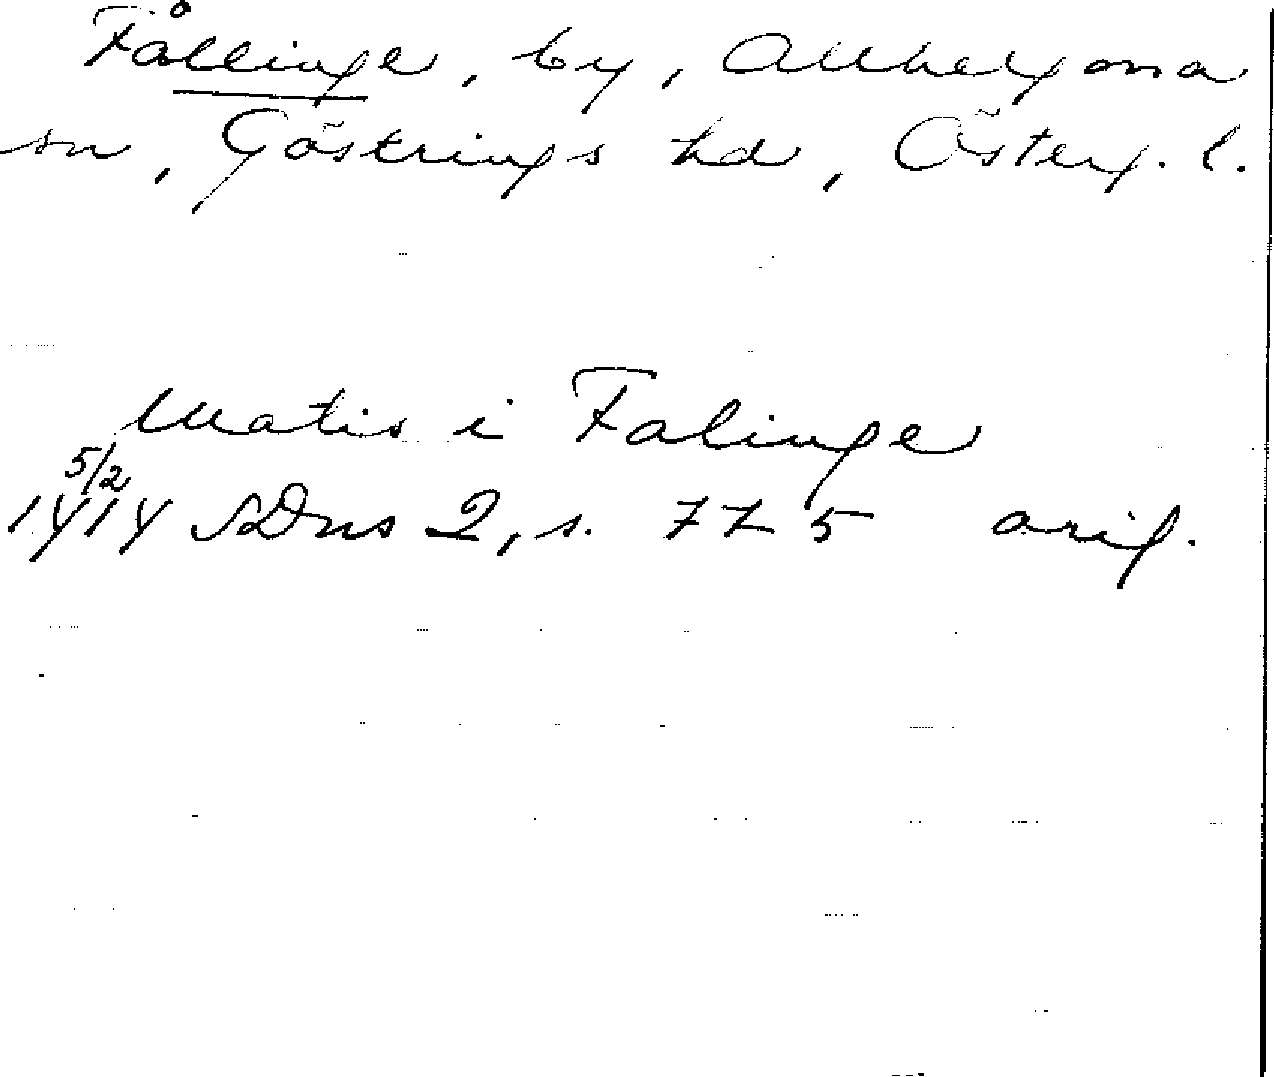 Fållinge, by, Allhelgona
sn, Göstrings hd, Österg. l.
Matis i Falinge
5/2
1414 SDns 2, s. 775 orig.